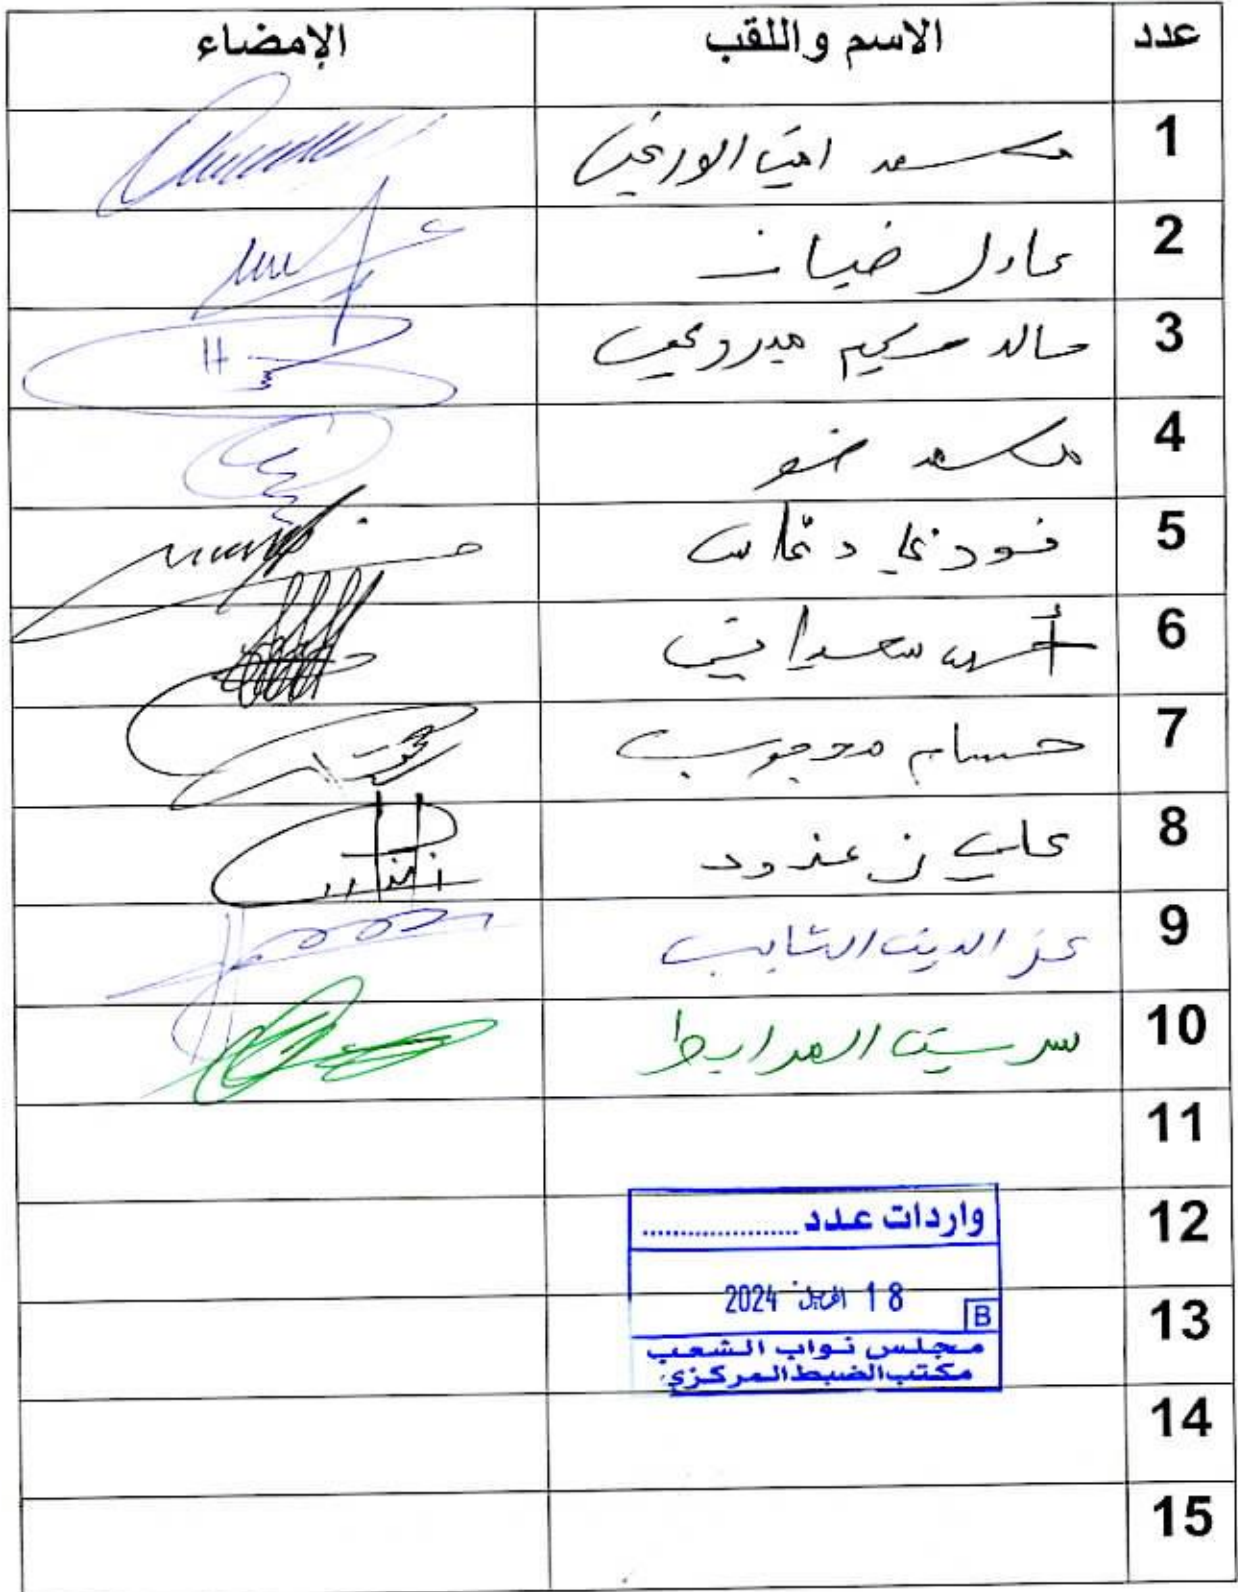 عدد الاسم واللقب الإمضاء
1 محمد أمين الورغي
2 عادل ضياف
3 خالد حكيم مبروكي
4 محمد ضو
5 فوزي دعاس
6 أحمد سعيداني
7 حسام محجوب
8 علي زغدود
9 عز الدين التايب
10 سيرين المرابط
11
12
واردات عدد ....................
18 افريل 2024
B
13
مجلس نواب الشعب
مكتب الضبط المركزي
14
15